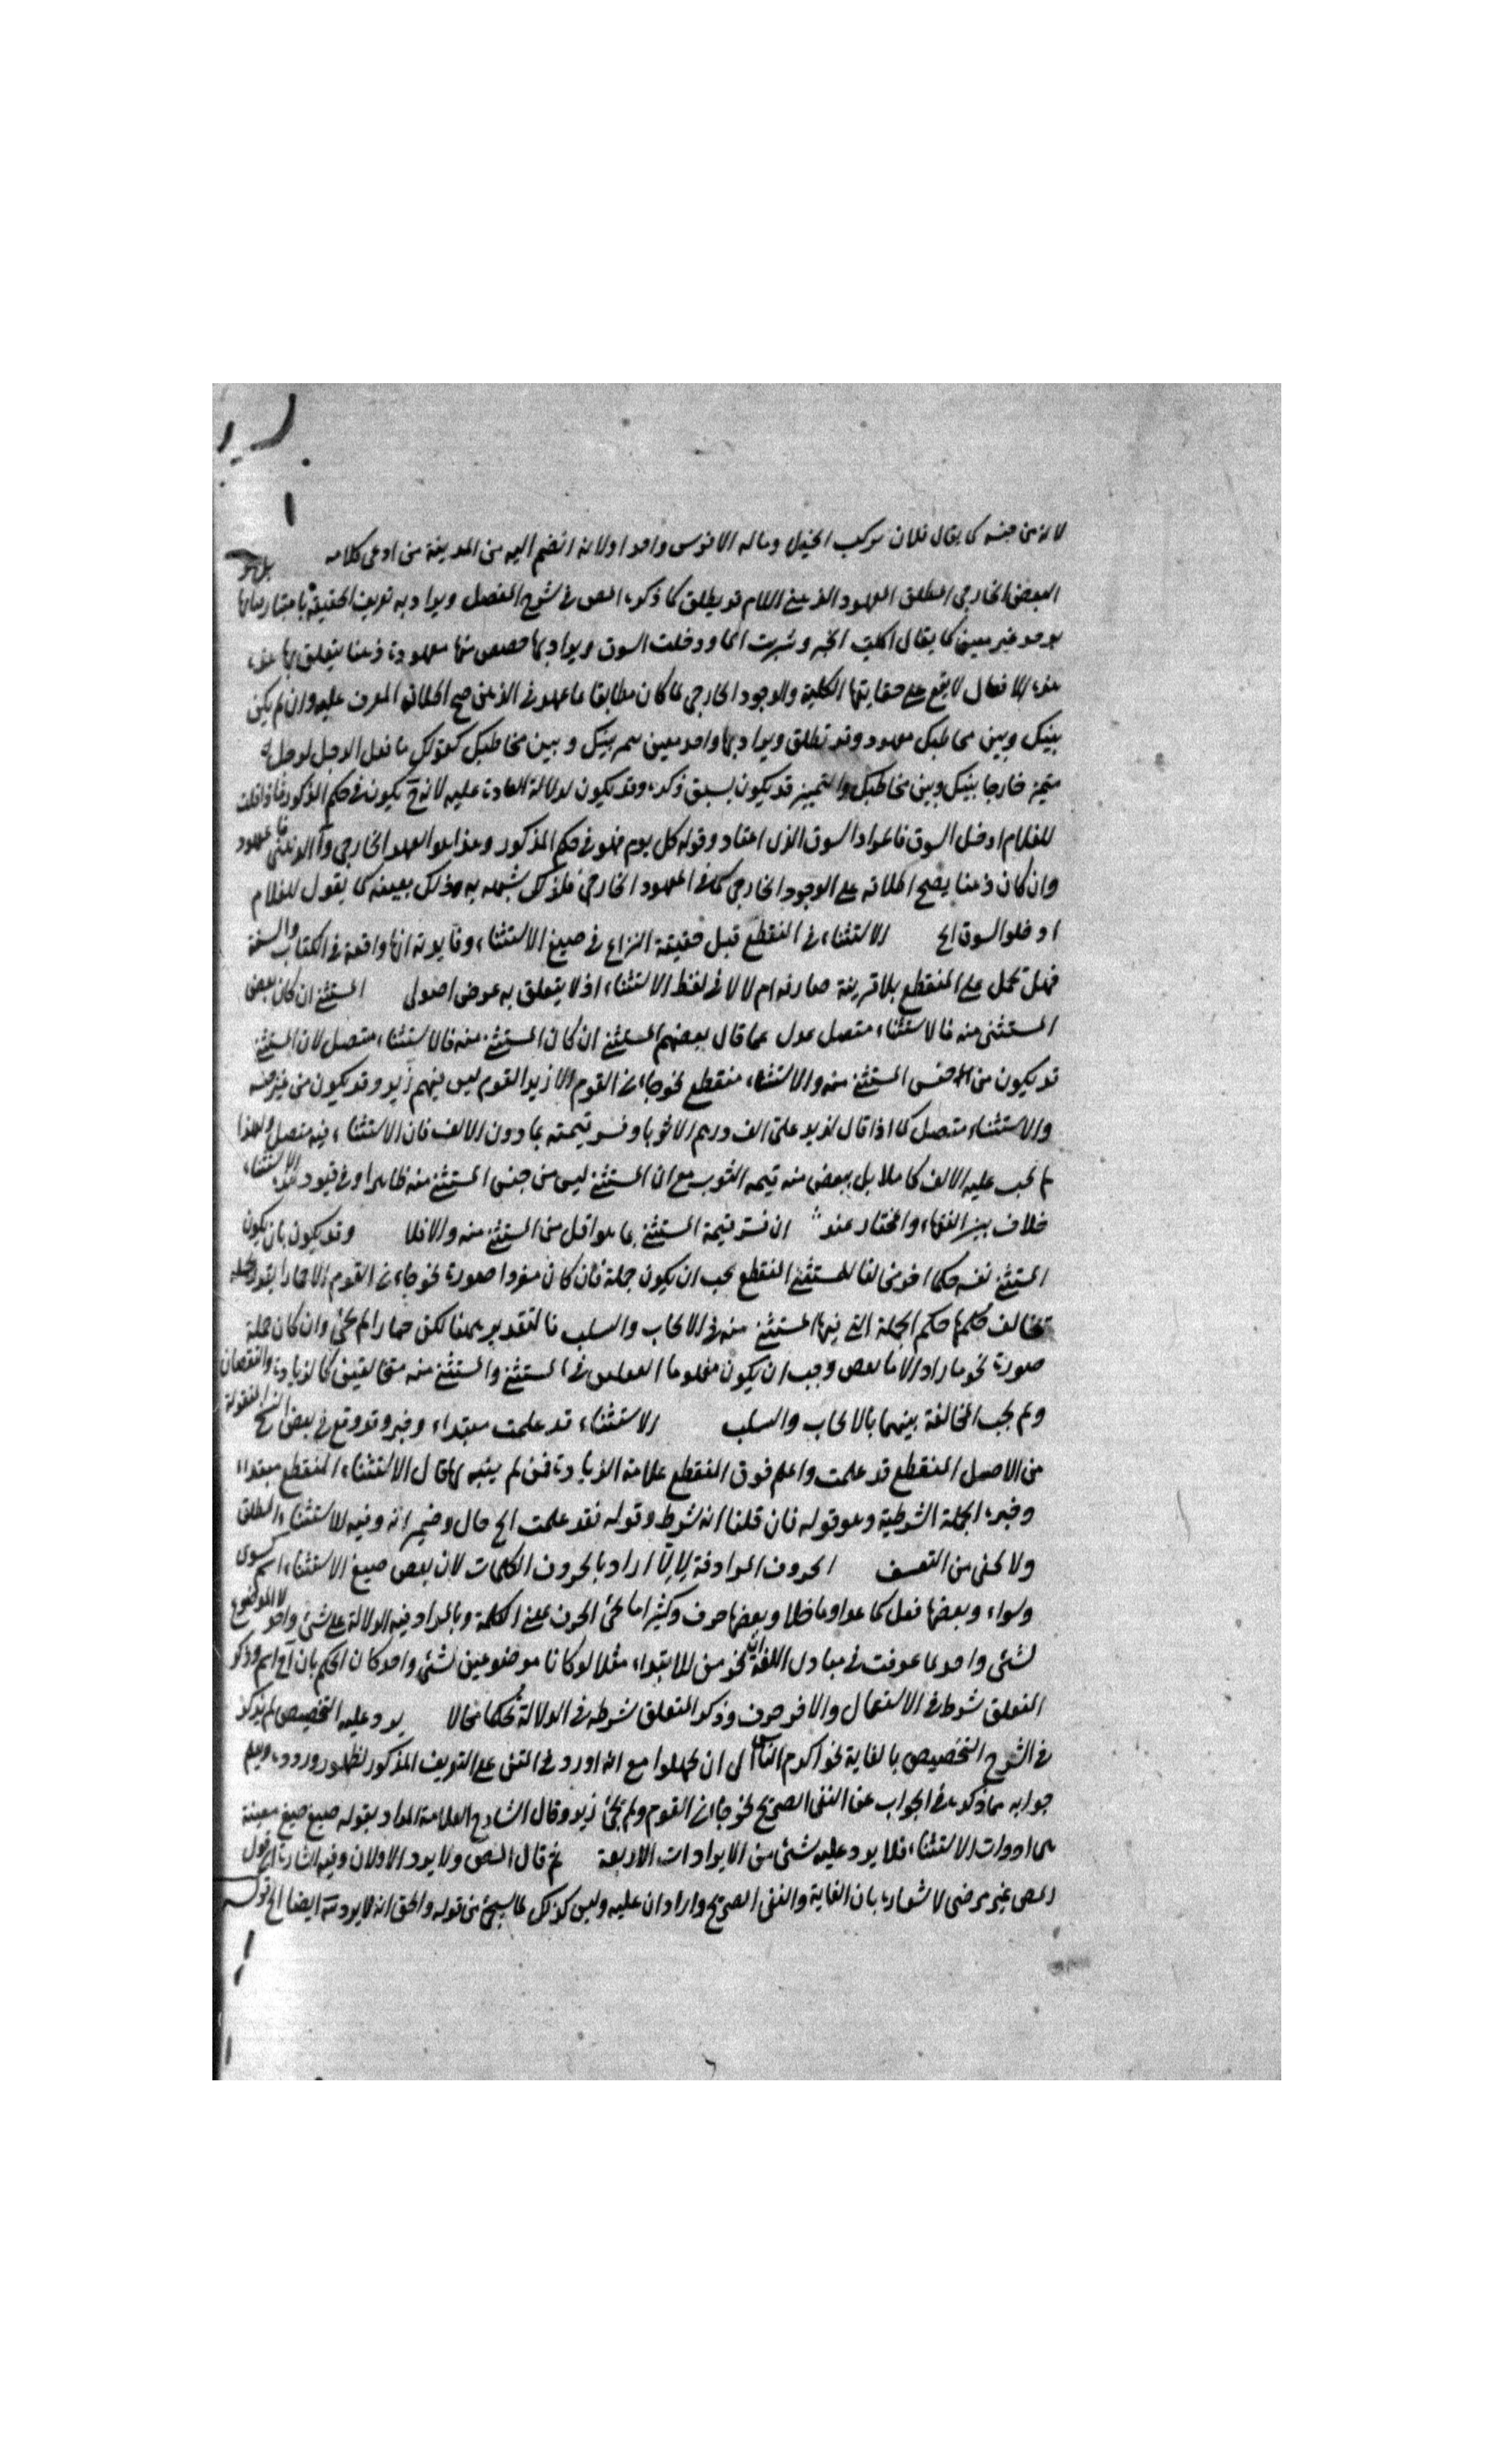 لانه من جنسه كما يقال فلان يركب الخيل وماله الا فرس واحد اولانه انضم اليه من المدينة من ادعى كلامه بل هو
البعض الخارجى المطلق المعهود الذهنى اللام قد يطلق كما ذكره المص فى شرح المفصل ويراد به تعريف الحقيقة باعتبار
يوجد غير معين كما يقال اكلت الخبز وشربت الما ودخلت السوق ويراد بها حصص منها معهودة ذهنا يتعلق بها
هذه الافعال لا يقع على حقايقها الكلية والوجود الخارجى لما كان مطابقا ما عهد فى الذهن صح اطلاق المعرف عليه وان لم يكن
بينك وبين مخاطبك معهود وقد تطلق ويراد بها واحد معين بينك وبين مخاطبك كقولك ما فعل الرجل لرجل
متميز خارجا بينك وبين مخاطبك والتميز قد يكون بسبق ذكره وقد يكون لدلالة العادة عليه لانه ح يكون فى حكم المذكور فاذا قلت
للغلام ادخل السوق فالمراد السوق الذى اعتاد دخوله كل يوم فهو فى حكم المذكور وهذا هو العهد الخارجى والذهنى معهود
وان كان ذهنا يصح اطلاقه على الوجود الخارجى كما فى المعهود الخارجى فلذلك شبهه به وذلك بعينه كما يقول للغلام
ادخلوا السوق الخ الاستثناء فى المنقطع قيل حقيقة النزاع فى صيغ الاستثناء وفايدته انها واقعة فى الكتاب والسنة
فهل تحمل على المنقطع بلا قرينة صارفه ام لا لا فى لفظ الاستثناء اذ لا يتعلق به غرض اصولى المستثنى ان كان بعض
المستثنى منه فالاستثناء متصل عدل عما قال بعضهم المستثنى ان كان المستثنى منه فالاستثناء متصل لان المستثنى
قد يكون من جنس المستثنى منه والاستثناء منقطع نحو جاءنى القوم الا زيدا لقوم ليس فيهم زيد وقد يكون من غير جنسه
والاستثناء متصل كما اذا قال لزيد على الف درهم الا ثوبا وفسر قيمته بما دون الالف فان الاستثناء فيه متصل ولهذا
لم يجب عليه الالف كاملا بل ببعض منه قيمه الثوب مع ان المستثنى ليس من جنس المستثنى منه ظاهرا وفى قيود هذه الاستثناء
خلاف بين الفقهاء والمختار عنده ان فسر قيمة المستثنى بما هو اقل من المستثنى منه والا فلا وقد يكون بان يكون
المستثنى نفسه حكما اخر مخالفا للمستثنى المنقطع يجب ان يكون جملة فان كان مفردا صورة نحو جاءنى القوم الا حمارا يقدر جملة
تخالف حكمها حكم الجملة التى فيها المستثنى منه فى الايجاب والسلب فالتقدير ههنا لكن حمارا لم يجئ وان كان جملة
صورة نحو ما زاد الا ما نقص وجب ان يكون الفعلين فى المستثنى والمستثنى منه متخالفين كالزيادة والنقصان
ولم يجب المخالفة بينهما بالايجاب والسلب الاستثناء قد علمت مبتداء وخبر وقد وقع فى بعض النسخ المنقولة
من الاصل المنقطع قد علمت واعلم فوق المنقطع علامة الزيادة فمن لم يتنبه قال الاستثناء المنقطع مبتداء
وخبره الجملة الشرطية وهو قوله فان قلنا انه شرط وقوله فقد علمت الخ حال وضمير انه وفيه للاستثناء المطلق
ولا يخفى من التعسف الحروف المرادفة لالا اراد بالحروف الكلمات لان بعض صيغ الاستثناء اسم كسوى
وسواء وبعضها فعل كما عدا وما خلا وبعضها حرف وكثيرا ما يجئ الحرف بمعنى الكلمة وبالمرادفة الدلالة على شئ واحد لا الموضوع
لشئ واحد لما عرفت فى مبادى اللغة ان نحو من للابتداء مثلا لو كانا موضوعين لشئ واحد كان الحكم بان اسم وذكر
المتعلق شرط فى الاستعمال والاخر حرف وذكر المتعلق شرطه فى الدلالة تحكما محالا يرد عليه التخصيص لم يذكر
فى الشرح التخصيص بالغاية نحو اكرم الناس الى ان يجهلوا مع انه اورد فى المتن على التعريف المذكور لظهور وروده ويعلم
جوابه مما ذكره فى الجواب عن النفى الصريح نحو جاءنى القوم ولم يجئ زيد وقال الشارح العلامة المراد بقوله صيغ صيغ معينة
من ادوات الاستثناء فلا يرد عليه شئ من الايرادات الاربعة ثم قال المص ولا يرد الاولان وفيه اشارة الى قول
المص غير مرضى لاشعاره بان الغاية والنفى الصريح واردان عليه وليس كذلك لما سيجئ من قوله والحق انه لا يرد ايضا الخ قوله